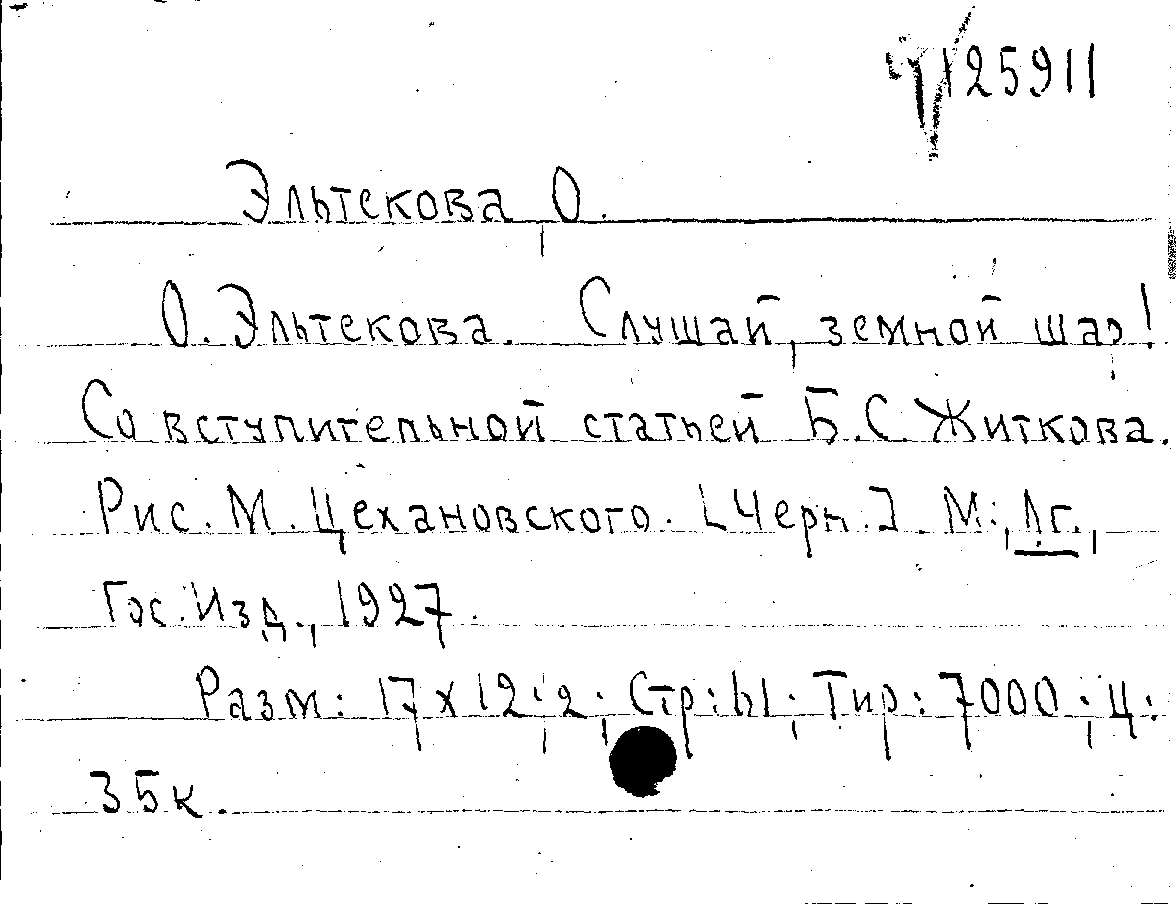 125911
Эльтекова О.
О. Эльтекова. Слушай, земной шар!
Со вступительной статьей Б.С. Житкова.
Рис. М. Цехановского. [Черн.]. М.; Лг.,
Гос. Изд., 1927.
Разм: 17х12,2; Стр: 61; Тир: 7000; Ц:
35к.